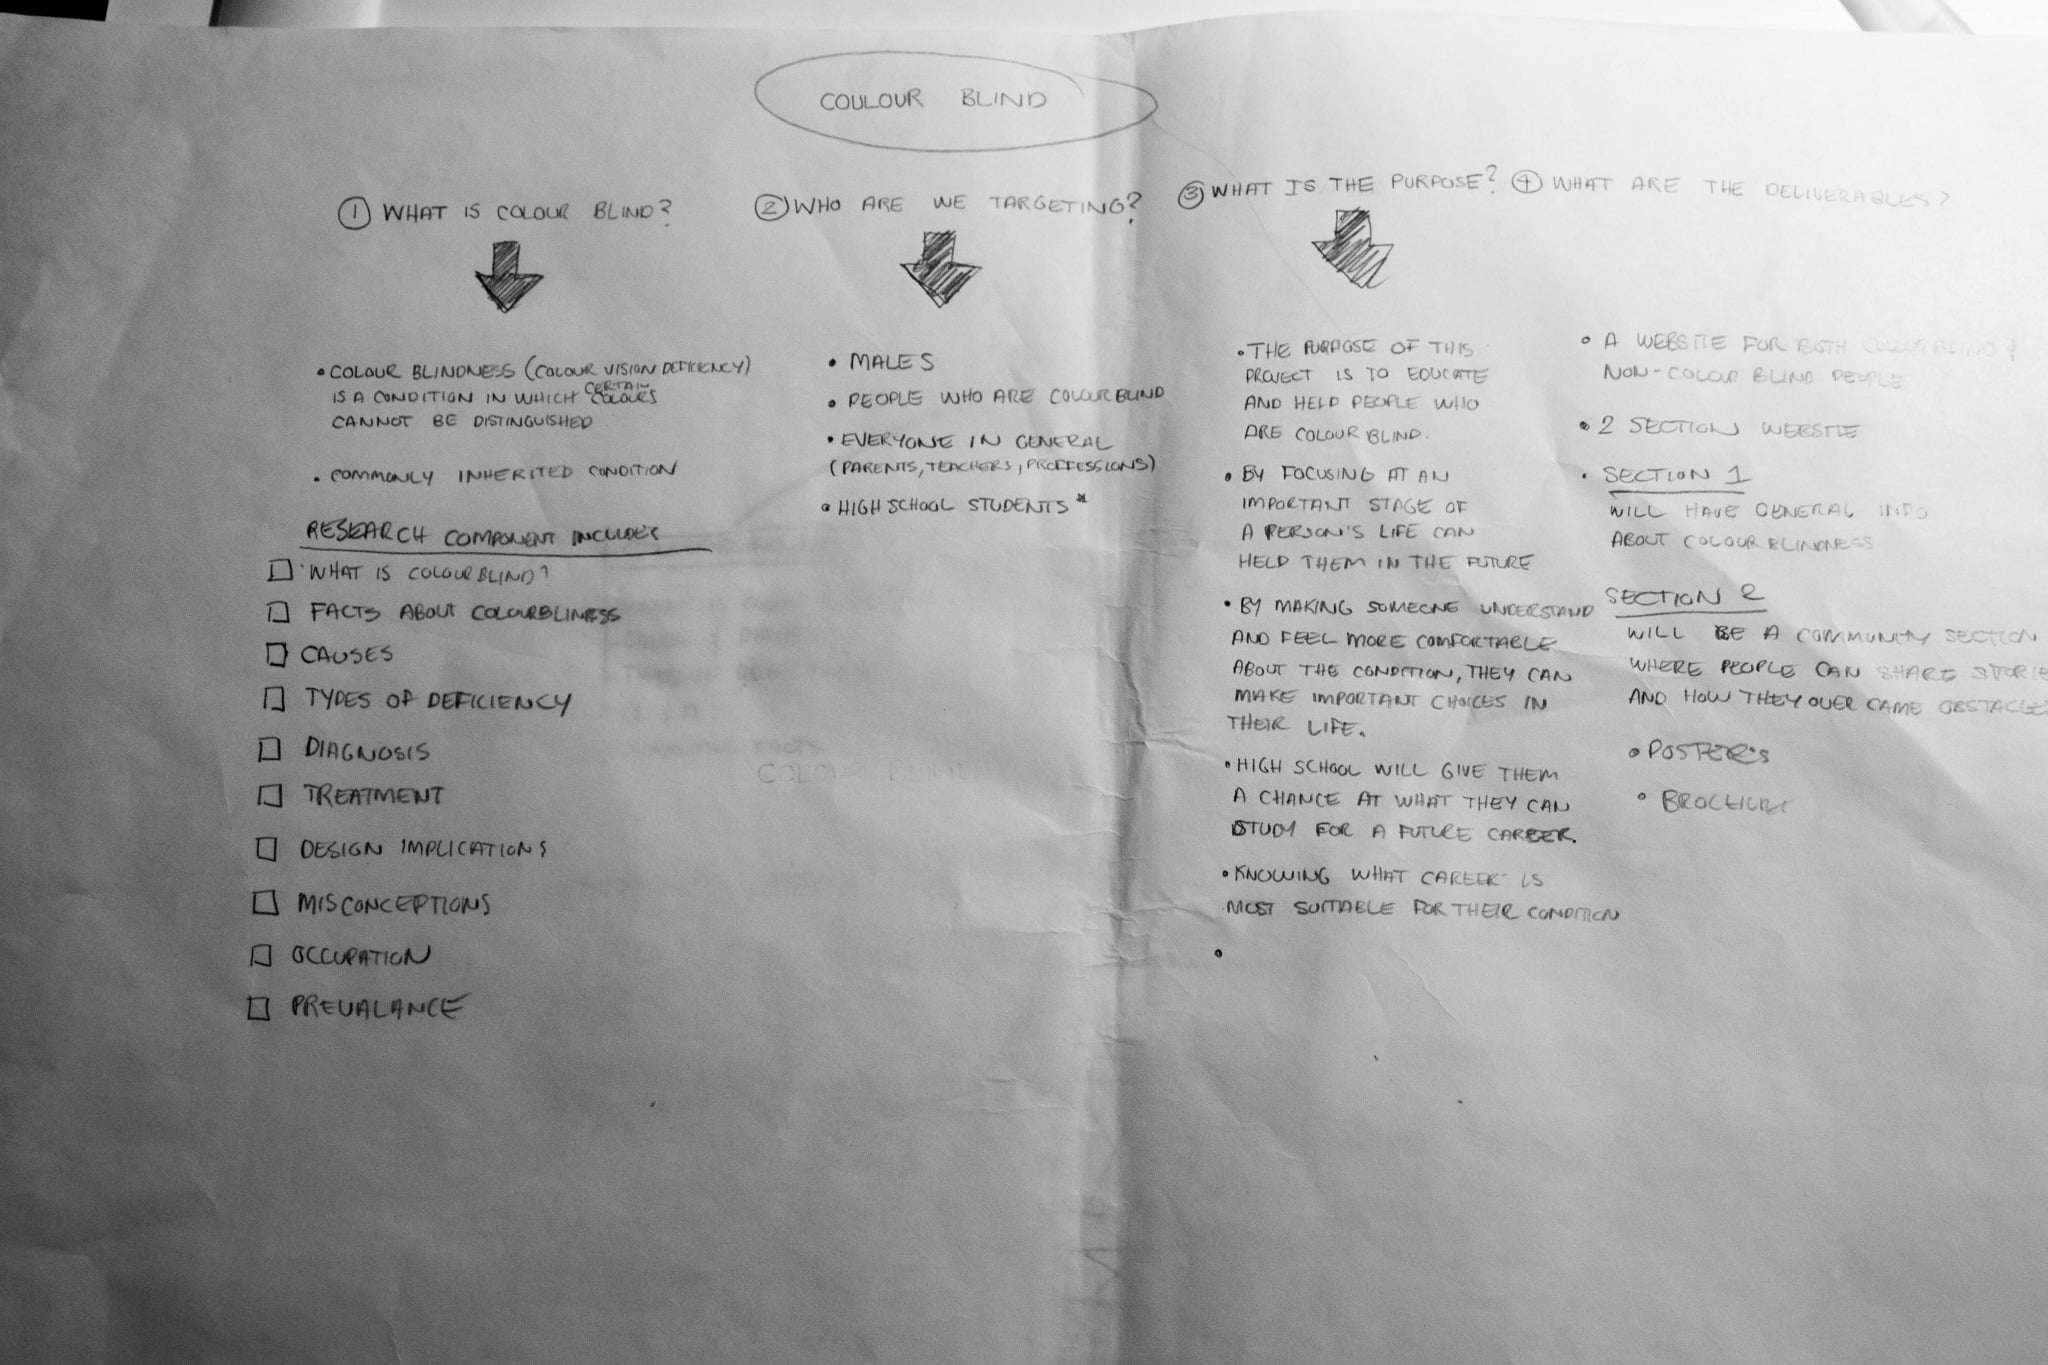 COULOUR BLIND
① WHAT IS COLOUR BLIND?
• COLOUR BLINDNESS (COLOUR VISION DEFICIENCY)
IS A CONDITION IN WHICH CERTAIN COLOURS
CANNOT BE DISTINGUISHED
• COMMONLY INHERITED CONDITION
RESEARCH COMPONENT INCLUDES
WHAT IS COLOURBLIND?
FACTS ABOUT COLOURBLINESS
CAUSES
TYPES OF DEFICIENCY
DIAGNOSIS
TREATMENT
DESIGN IMPLICATIONS
MISCONCEPTIONS
OCCUPATION
PREVALANCE
② WHO ARE WE TARGETING?
• MALES
• PEOPLE WHO ARE COLOURBLIND
• EVERYONE IN GENERAL
(PARENTS, TEACHERS, PROFFESSIONS)
• HIGH SCHOOL STUDENTS *
③ WHAT IS THE PURPOSE?
• THE PURPOSE OF THIS
PROJECT IS TO EDUCATE
AND HELD PEOPLE WHO
ARE COLOUR BLIND.
• BY FOCUSING AT AN
IMPORTANT STAGE OF
A PERSON'S LIFE CAN
HELD THEM IN THE FUTURE
• BY MAKING SOMEONE UNDERSTAND
AND FEEL MORE COMFORTABLE
ABOUT THE CONDITION, THEY CAN
MAKE IMPORTANT CHOICES IN
THEIR LIFE.
• HIGH SCHOOL WILL GIVE THEM
A CHANCE AT WHAT THEY CAN
STUDY FOR A FUTURE CAREER.
• KNOWING WHAT CAREER IS
MOST SUITABLE FOR THEIR CONDITION
④ WHAT ARE THE DELIVERABLES?
• A WEBSITE FOR BOTH COLOURBLIND &
NON-COLOUR BLIND PEOPLE
• 2 SECTION WEBSITE
• SECTION 1
WILL HAVE GENERAL INFO
ABOUT COLOUR BLINDNESS
SECTION 2
WILL BE A COMMUNITY SECTION
WHERE PEOPLE CAN SHARE STORIE
AND HOW THEY OVER CAME OBSTACLES
• POSTER'S
• BROCHURE